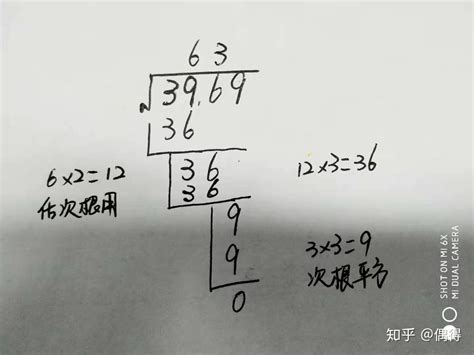 63
√39.69
36
36
6×2=12
12×3=36
36
估次根用
9
9
3×3=9
次根平方
0
SHOT ON MI 6X
MI DUAL CAMERA
知乎 @偶得